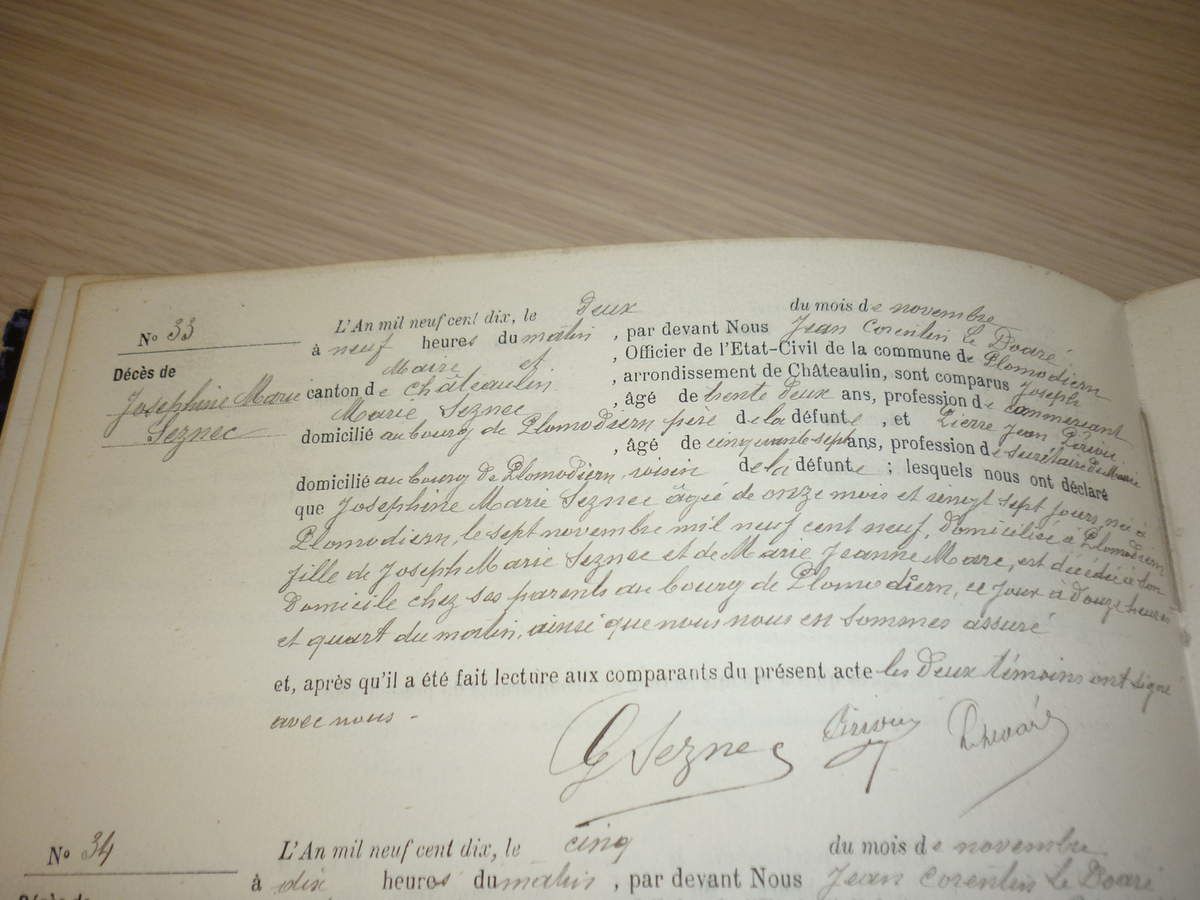 No 33
Décès de
Josephine Marie
Seznec
L'An mil neuf cent dix, le deux du mois de novembre
à neuf heures du matin, par devant Nous Jean Corentin Le Doaré
Maire et, Officier de l'Etat-Civil de la commune de Plomodiern
canton de Châteaulin, arrondissement de Châteaulin, sont comparus Joseph
Marie Seznec, âgé de trente deux ans, profession de commerçant
domicilié au bourg de Plomodiern père de la défunte, et Pierre Jean Piriou
, âgé de cinquante sept ans, profession de secrétaire de Mairie
domicilié au bourg de Plomodiern, voisin de la défunte; lesquels nous ont déclaré
que Josephine Marie Seznec âgée de onze mois et vingt sept jours, née à
Plomodiern, le sept novembre mil neuf cent neuf, domiciliée à Plomodiern
fille de Joseph Marie Seznec et de Marie Jeanne Marc, est décédée à son
domicile chez ses parents au bourg de Plomodiern, ce jour à douze heures
et quart du matin, ainsi que nous nous en sommes assuré
et, après qu'il a été fait lecture aux comparants du présent acte les deux témoins ont signé
avec nous -
Seznec Piriou
No 34
L'An mil neuf cent dix, le cinq du mois de novembre
à dix heures du matin, par devant Nous Jean Corentin Le Doaré
Décès de